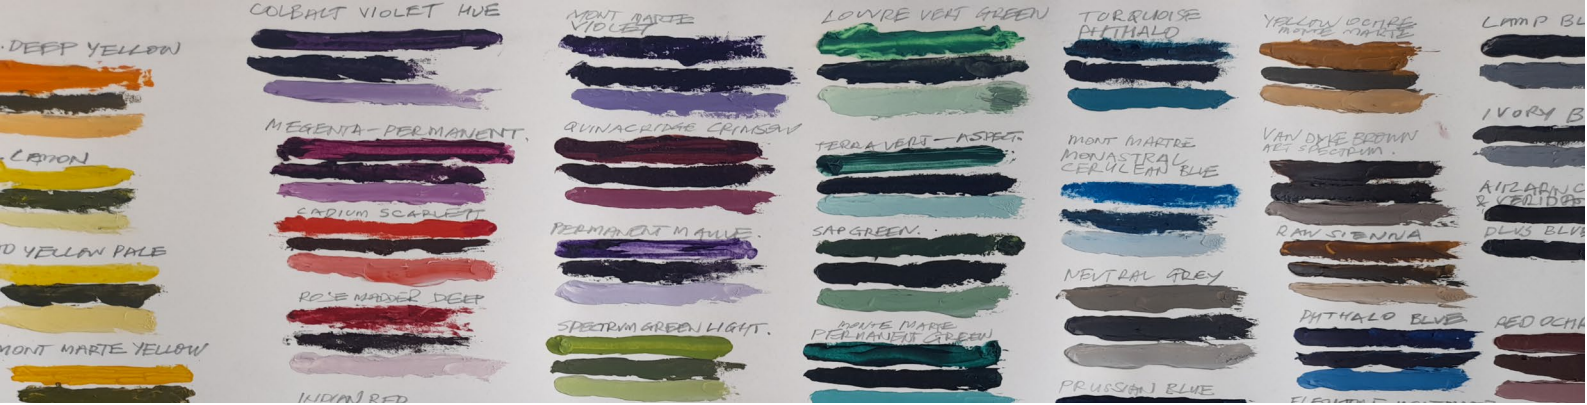 . DEEP YELLOW
. LEMON
D YELLOW PALE
MONT MARTE YELLOW
COLBALT VIOLET HUE
MEGENTA-PERMANENT.
CADIUM SCARLETT
ROSE MADDER DEEP
INDIAN RED
MONT MARTE
VIOLET
QUINACRIDGE CRIMSON
PERMANENT MAUVE.
SPECTRUM GREEN LIGHT.
LOUVRE VERT GREEN
TERRA VERT-ASPECT.
SAP GREEN.
MONTE MARTE
PERMANENT GREEN
TORQUOISE
PHTHALO
MONT MARTRE
MONASTRAL
CERULEAN BLUE
NEUTRAL GREY
PRUSSIAN BLUE
YELLOW OCHRE
MONTE MARTE
VAN DYKE BROWN
ART SPECTRUM.
RAW SIENNA
PHTHALO BLUE
LAMP BL
IVORY B
ALIZARN C
& VERIDA
PLUS BLUE
RED OCHR